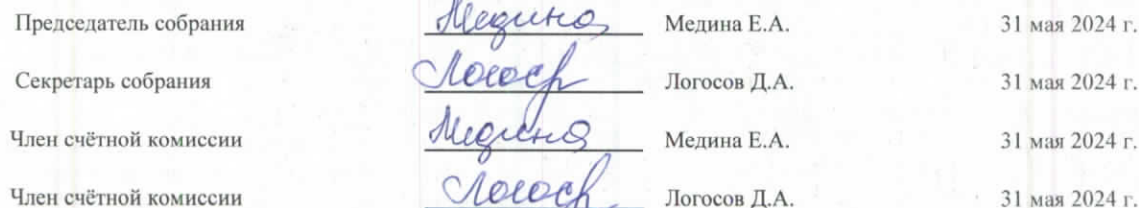 Председатель собрания Медина Медина Е.А. 31 мая 2024 г.
Секретарь собрания Логосов Логосов Д.А. 31 мая 2024 г.
Член счётной комиссии Медина Медина Е.А. 31 мая 2024 г.
Член счётной комиссии Логосов Логосов Д.А. 31 мая 2024 г.